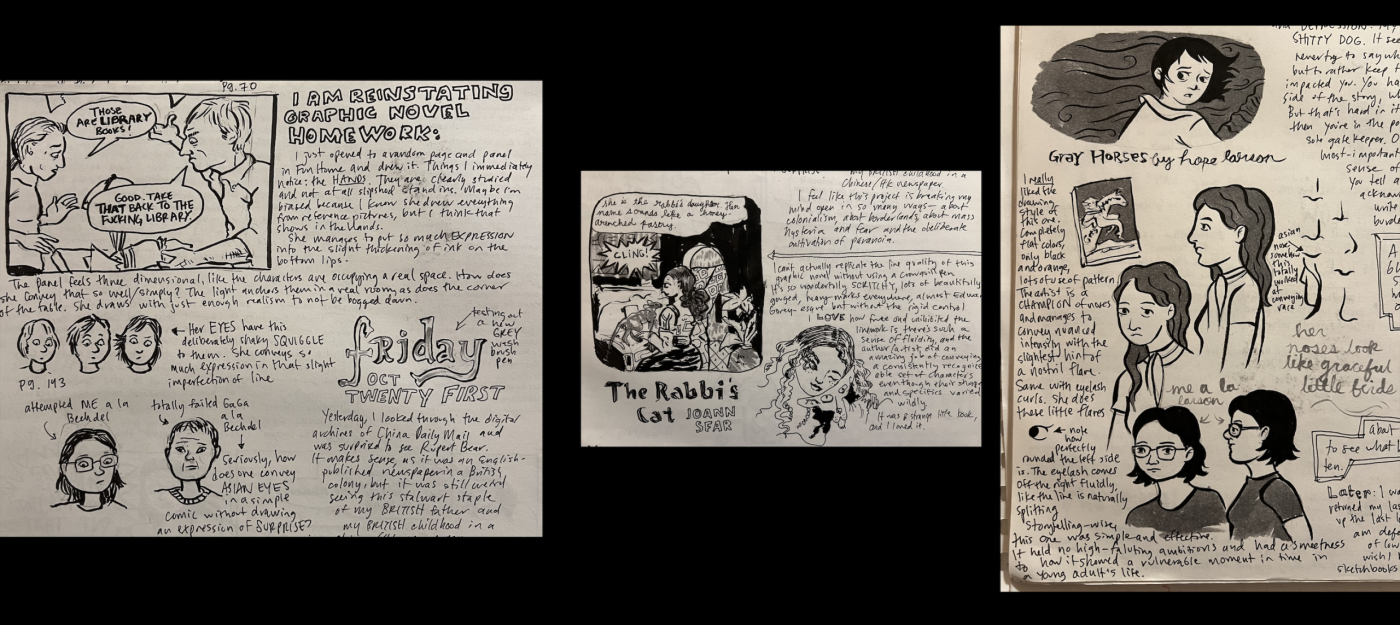 Pg. 70
THOSE
ARE LIBRARY
BOOKS!
GOOD. TAKE
THAT BACK TO THE
FUCKING LIBRARY.
I AM REINSTATING
GRAPHIC NOVEL
HOMEWORK:
I just opened to a random page and panel
in Fun Home and drew it. Things I immediately
notice: the HANDS. They are clearly studied
and not at all slipshod standins. Maybe I'm
biased because I know she drew everything
from reference pictures, but I think that
shows in the hands.
She manages to put so much EXPRESSION
into the slight thickening of ink on the
bottom lips.
The panel feels three dimensional, like the characters are occupying a real space. How does
she convey that so well/simply? The light anchors them in a real room, as does the corner
of the table. She draws with just enough realism to not be bogged down.
Pg. 143
← Her EYES have this
deliberately shaky SQUIGGLE
to them. She conveys so
much expression in that slight
imperfection of line
attempted ME a la
Bechdel
totally failed GaGa
a la
Bechdel
Seriously, how
does one convey
ASIAN EYES
in a simple
comic without drawing
an expression of SURPRISE?
friday
OCT
TWENTY FIRST
testing out
a new
GREY
wash
brush
pen
Yesterday, I looked through the digital
archives of China Daily Mail and
was surprised to see Rupert Bear.
It makes sense, as it was an English-
published newspaper in a British
colony, but it was still weird
seeing this stalwart staple
of my BRITISH father and
my BRITISH childhood in a
my British childhood in a
Chinese/HK newspaper
I feel like this project is breaking my
mind open in so many ways - about
colonialism, about borderlands, about mass
hysteria and fear and the deliberate
cultivation of paranoia.
she is the rabbi's daughter. Her
name sounds like a honey-
drenched pastry.
CLING!
The Rabbi's
Cat JOANN
SFAR
I can't actually replicate the line quality of this
graphic novel without using a crowquill pen.
It's so wonderfully SCRITCHY, lots of beautifully
gouged, hang-marks everywhere, almost Edward
Gorey-esque, but without the rigid control
I LOVE how free and uninhibited the
linework is there's such a
sense of fluidity, and the
author/artist did an
amazing job of conveying
a consistently recogniz
able set of characters
even though their shapes
and specifics varied
wildly.
It was a strange little book,
and I loved it.
Gray Horses by hope larson
I really
liked the
drawing
style of
this one.
Completely
flat colors,
only black
and orange,
lots of use of pattern
The artist is a
CHAMPION of noses
and manages to
convey nuanced
intensity with the
slightest hint of
a nostril flare.
Same with eyelash
curls. She does
these little flares
← note
how
perfectly
rounded the left side
is. The eyelash comes
off the right fluidly,
like the line is naturally
splitting
Storytelling-wise,
this one was simple and effective.
It held no high-faluting ambitions and had a sweetness
to how it showed a vulnerable moment in time in
a young adult's life.
asian
nose,
somehow
this
totally
worked
at
conveying
race
her
noses look
like graceful
little birds
me a la
larson
SHITTY DOG. It see
never try to say wh
but to rather keep t
impacted you. You ha
side of the story, wh
But that's hard in it
then you're in the po
sole gatekeeper. O
most-important
sense of
You tell a
acknow
write
burde
about
to see what
ten.
Later: I w
returned my las
up the last
am def
of low
wish!
sketchbooks